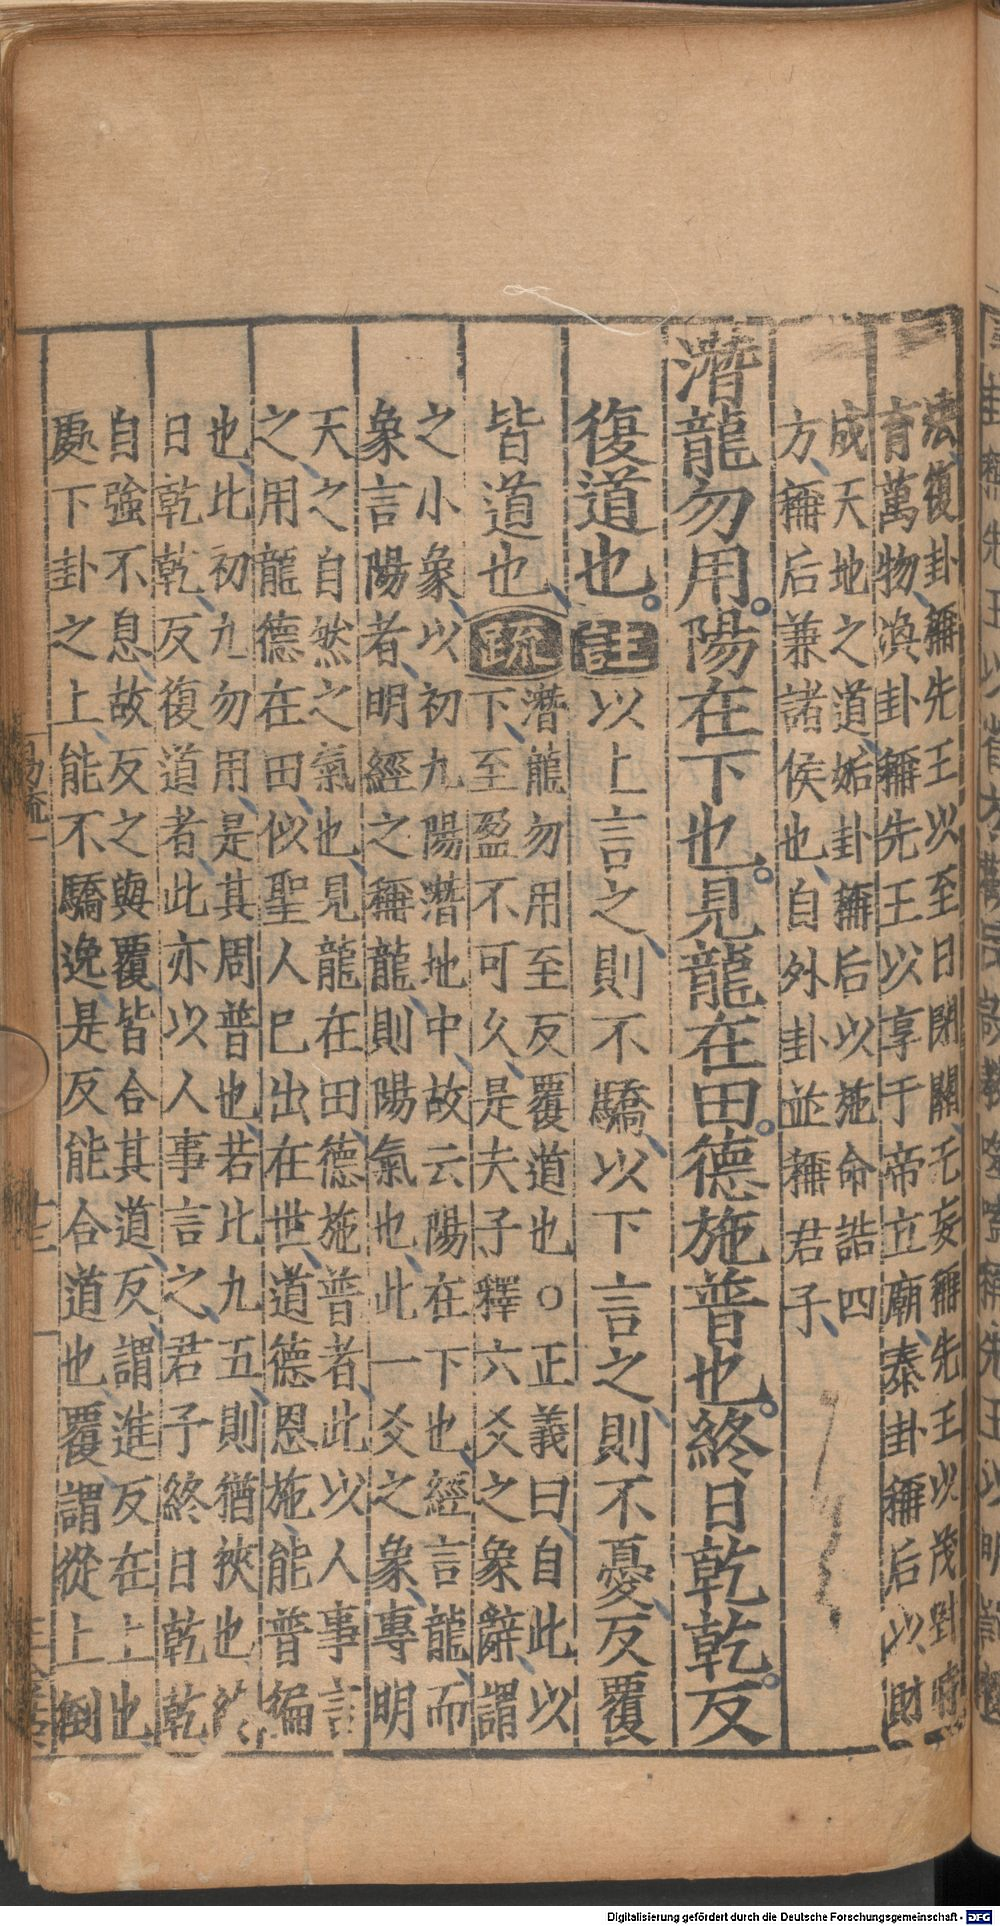 法復卦稱先王以至日閉關无妄稱先王以茂對時
育萬物渙卦稱先王以享于帝立廟泰卦稱后以財
成天地之道姤卦稱后以施命誥四
方稱后兼諸侯也自外卦並稱君子
潛龍勿用陽在下也見龍在田德施普也終日乾乾反
復道也註以上言之則不驕以下言之則不憂反覆
皆道也疏潛龍勿用至反覆道也○正義曰自此以
下至盈不可久是夫子釋六爻之象辭謂
之小象以初九陽潛地中故云陽在下也經言龍而
象言陽者明經之稱龍則陽氣也此一爻之象專明
天之自然之氣也見龍在田德施普者此以人事言
之用龍德在田似聖人已出在世道德恩施能普徧
也此初九勿用是其周普也若比九五則猶狹也終
日乾乾反復道者此亦以人事言之君子終日乾乾
自強不息故反之與覆皆合其道反謂進反在上也
處下卦之上能不驕逸是反能合道也覆謂從上倒
Digitalisierung gefördert durch die Deutsche Forschungsgemeinschaft - DFG